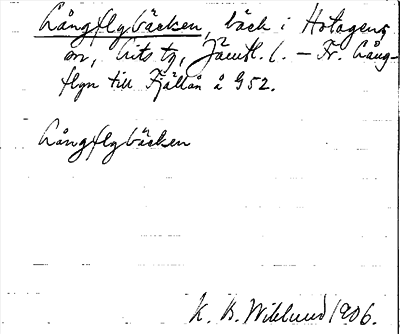 Långflybäcken, bäck i Hotagens
sn, Lits tg, Jämtl. l. — Fr. Lång-
flyn till Fjällån å G52.
Långflybäcken
K. B. Wiklund 1906.